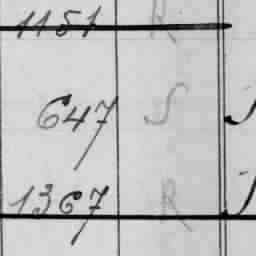 1151 R
647 S
1367 R